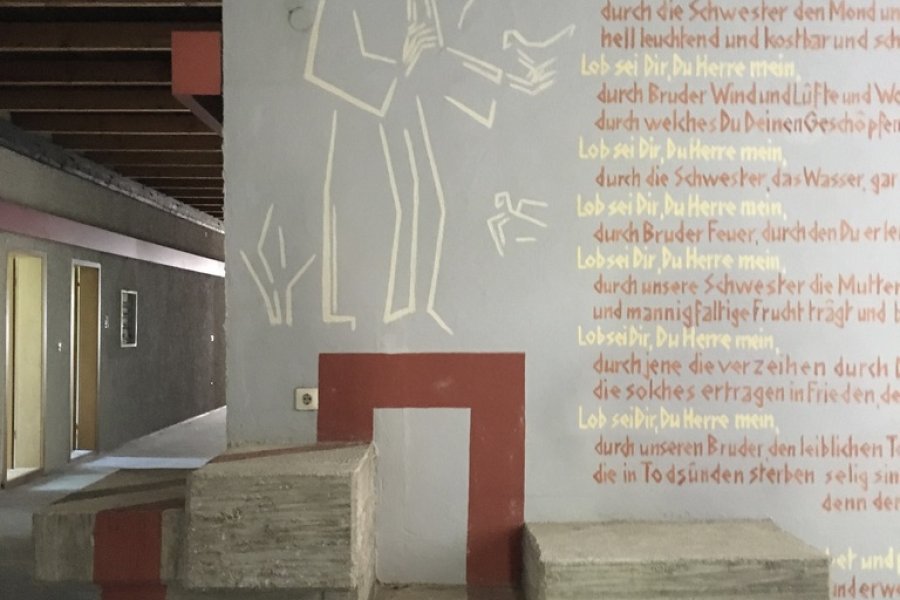 durch die Schwester den Mond un
hell leuchtend und kostbar und sch
Lob sei Dir, Du Herre mein,
durch Bruder Wind und Lüfte und Wo
durch welches Du Deinen Geschöpfen
Lob sei Dir, Du Herre mein,
durch die Schwester, das Wasser, gar
Lob sei Dir, Du Herre mein,
durch Bruder Feuer, durch den Du erle
Lob sei Dir, Du Herre mein,
durch unsere Schwester die Mutter
und mannigfaltige Frucht trägt und b
Lob sei Dir, Du Herre mein,
durch jene die verzeihen durch D
die solches ertragen in Frieden, de
Lob sei Dir, Du Herre mein,
durch unseren Bruder, den leiblichen To
die in Todsünden sterben selig sin
denn der
bet und
inderwe